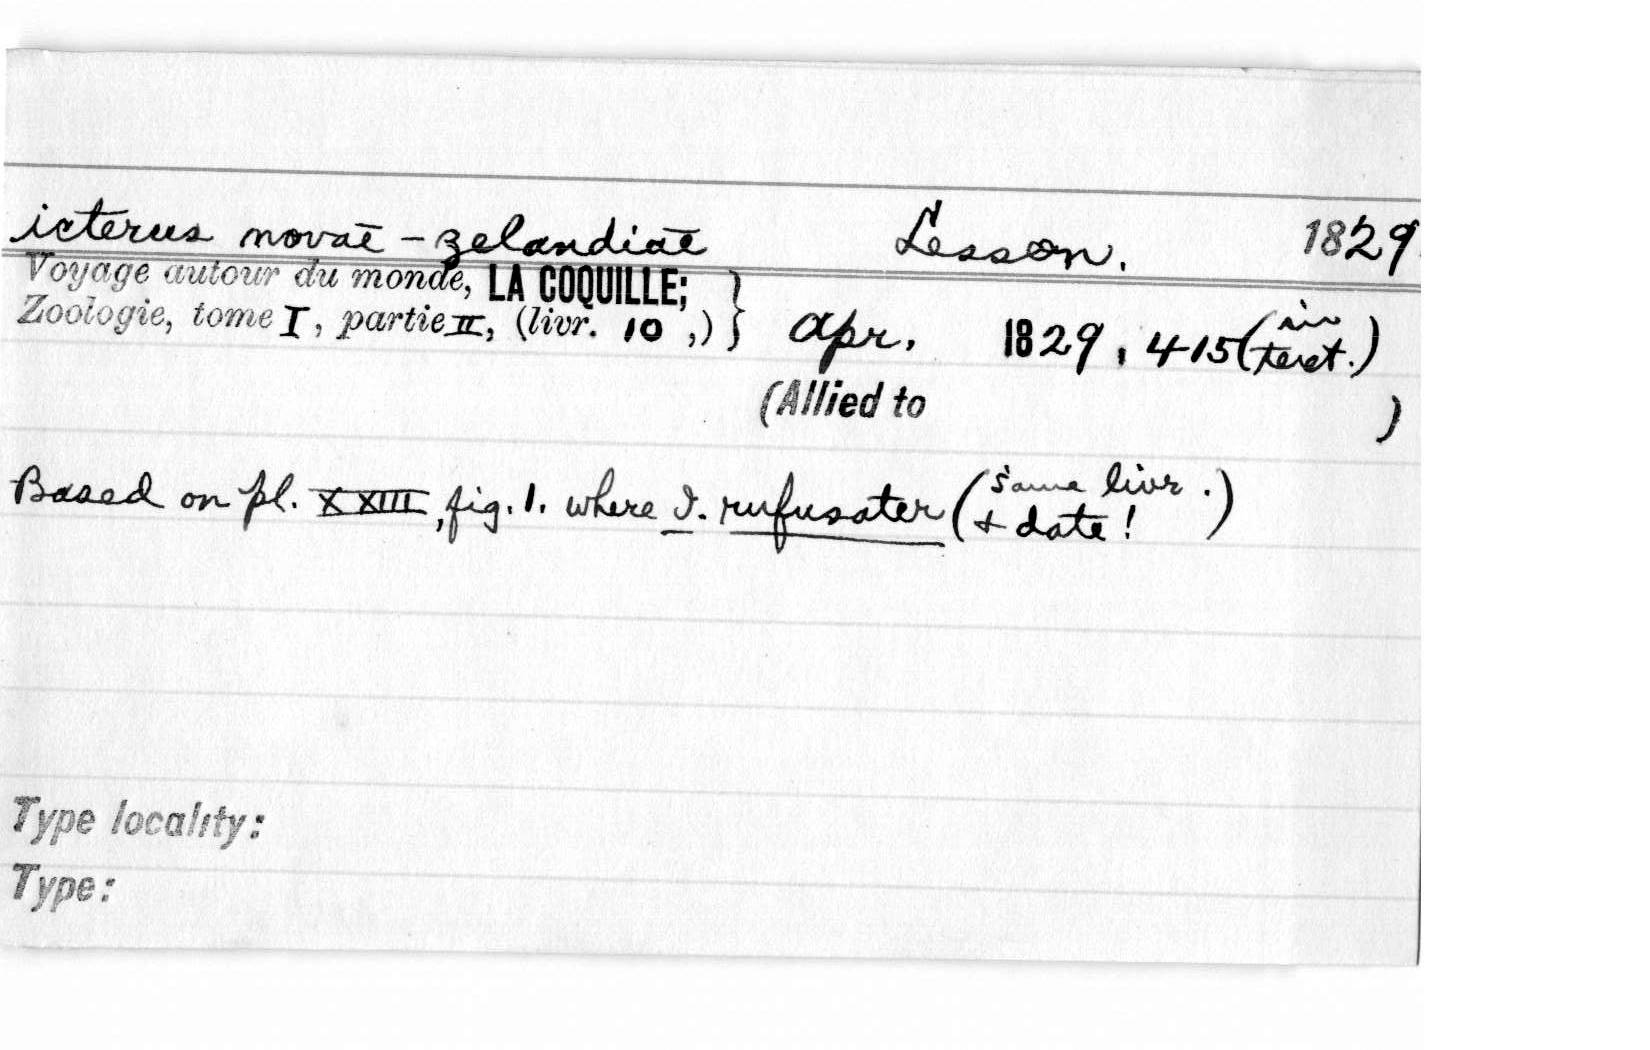 icterus novae-zelandiae Lesson. 1829
Voyage autour du monde, LA COQUILLE;
Zoologie, tome I, partie II, (livr. 10 ,) } Apr. 1829, 415 (in text.)
(Allied to )
Based on pl. XXIII, fig. 1. where I. rufusater (same livr. + date!)
Type locality:
Type: